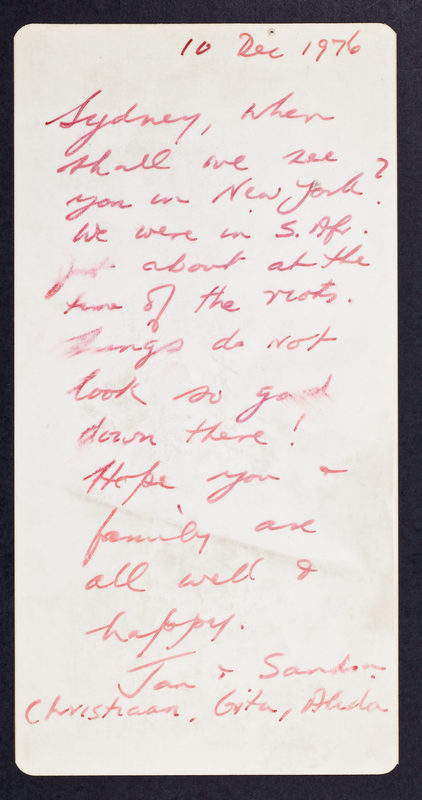 10 Dec 1976
Sydney, when
shall we see
you in New York?
We were in S. Afr.
just about at the
time of the riots.
Things do not
look so good
down there!
Hope you &
family are
all well &
happy.
Jan & Sandra
Christiaan, Gita, Alida